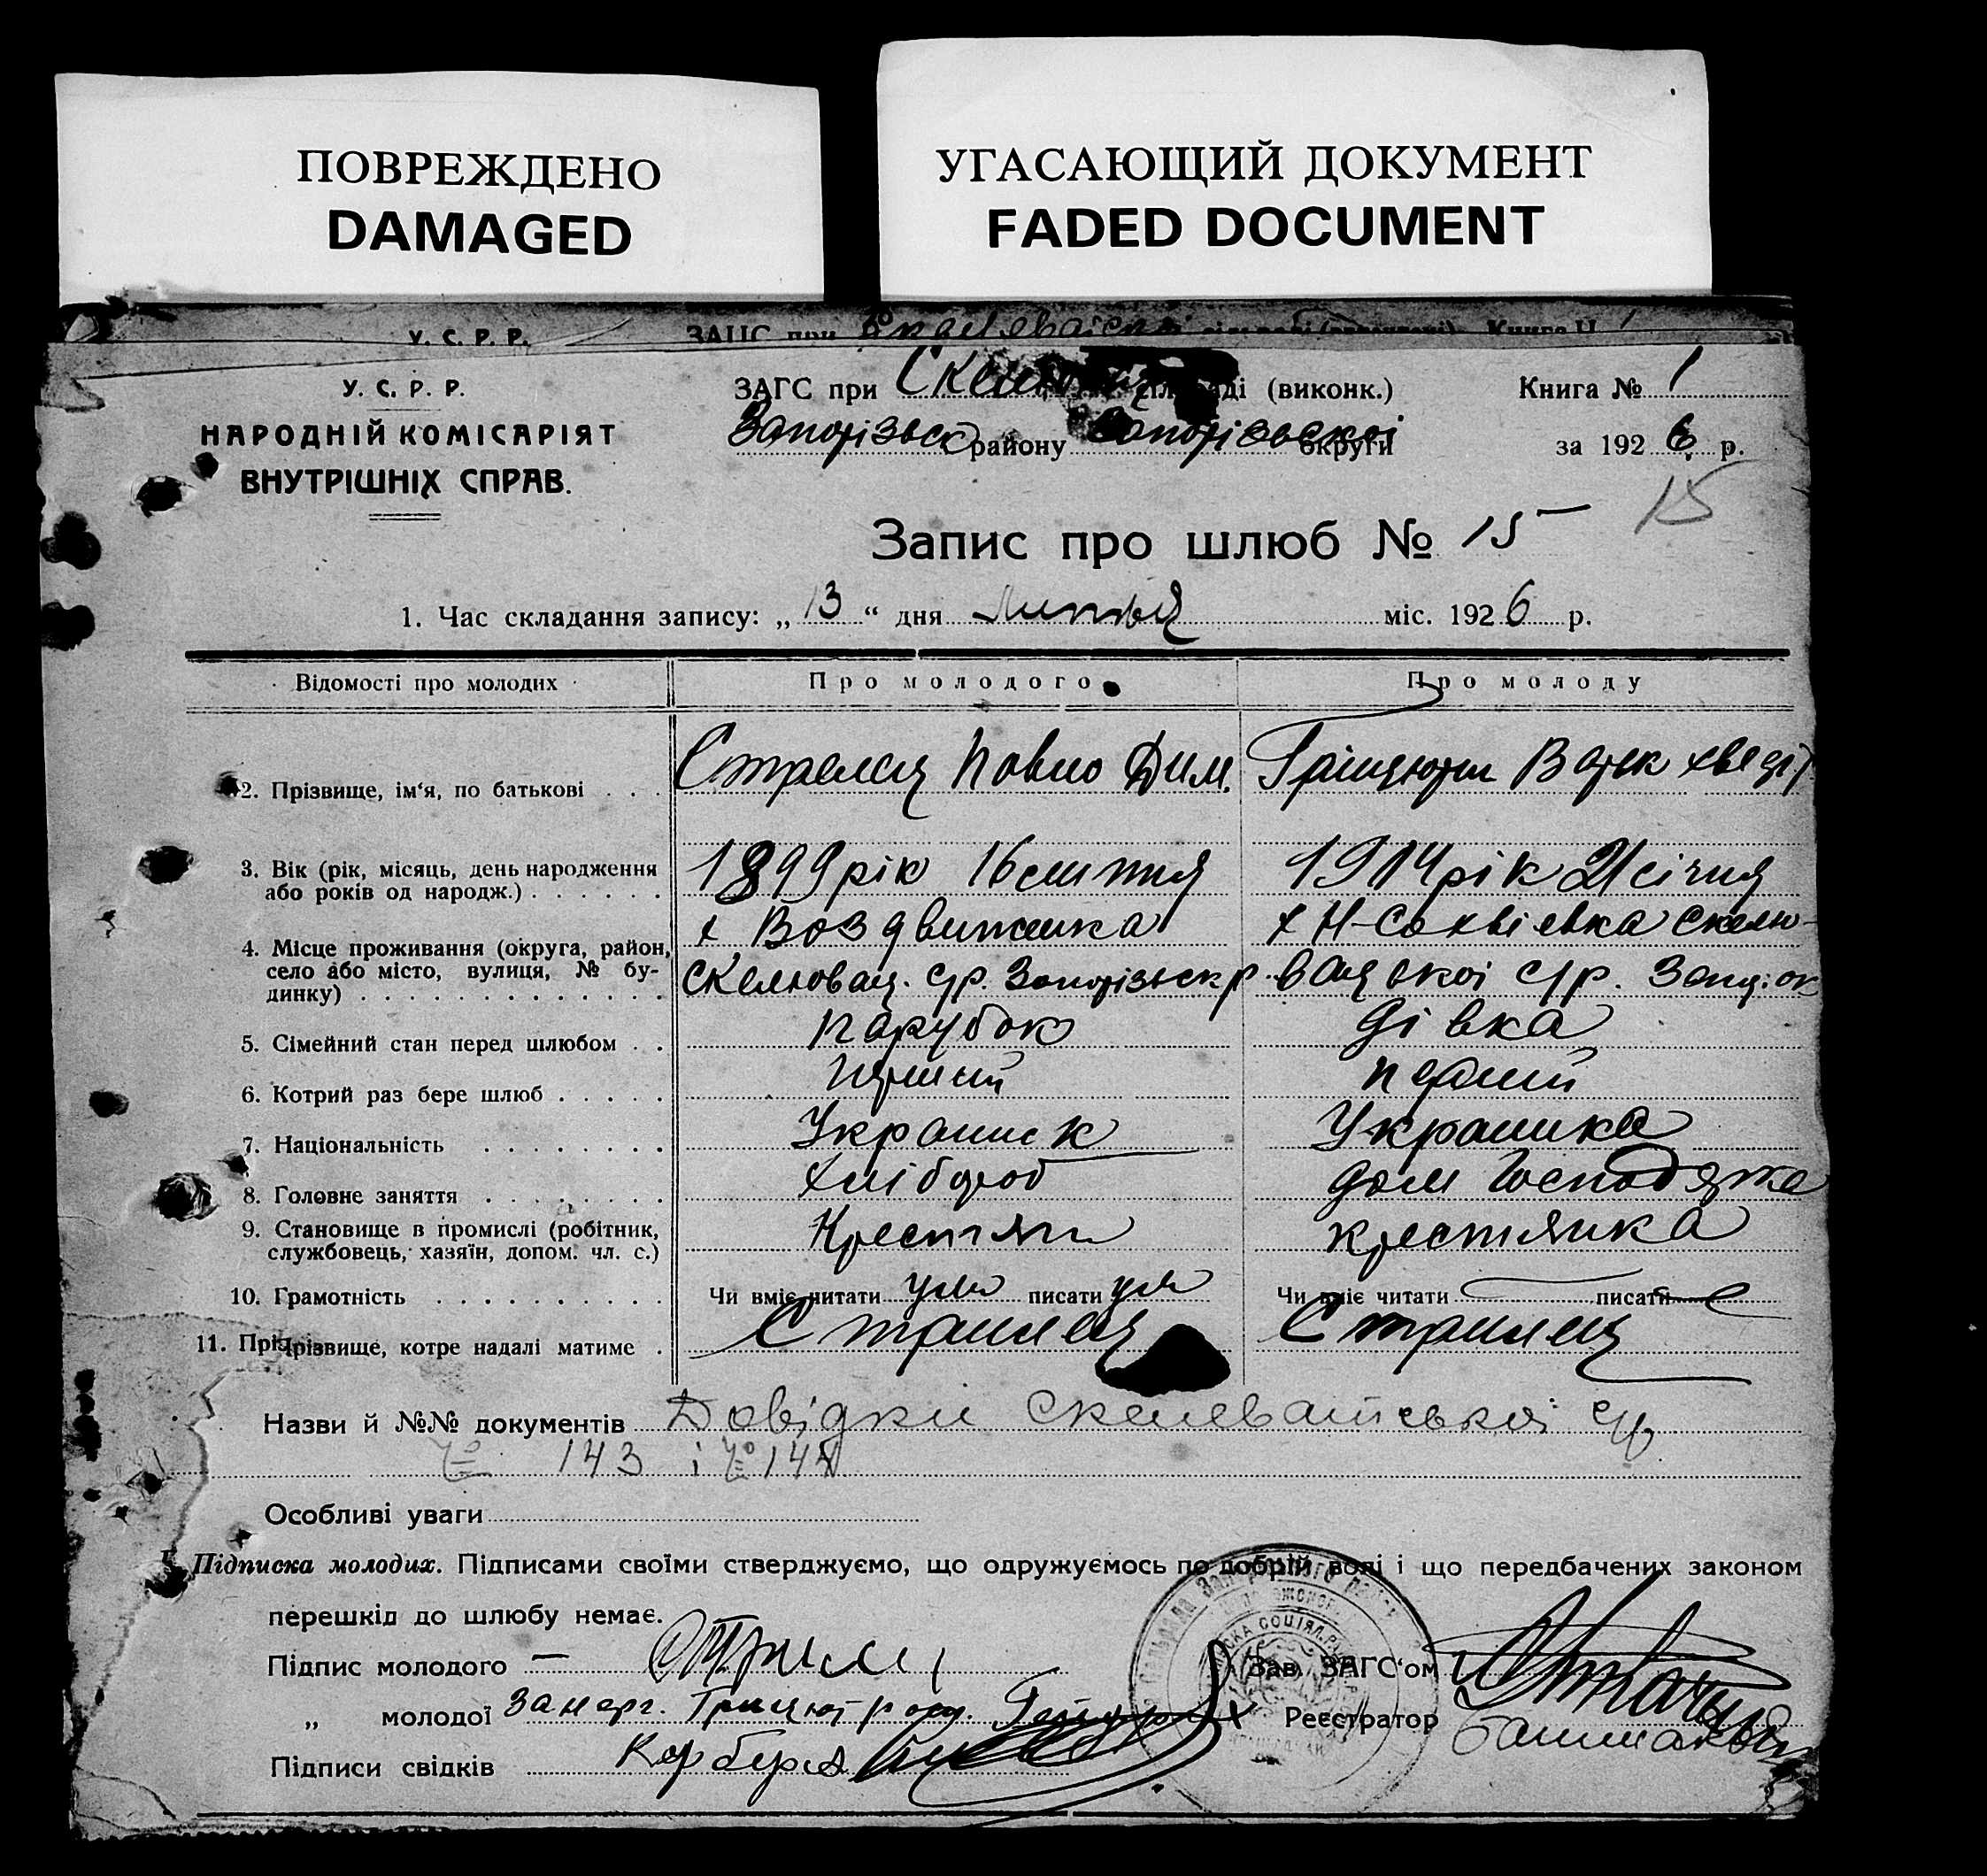 ПОВРЕЖДЕНО
DAMAGED
УГАСАЮЩИЙ ДОКУМЕНТ
FADED DOCUMENT
У. С. Р. Р. ЗАГС при
У. С. Р. Р.
НАРОДНІЙ КОМІСАРІЯТ
ВНУТРІШНІХ СПРАВ.
ЗАГС при (виконк.) Книга № 1
Запорізьк району Запорізької округи за 1926 р.
15
Запис про шлюб № 15
1. Час складання запису: „13“ дня Липня міс. 1926 р.
Відомості про молодих Про молодого Про молоду
2. Прізвище, ім'я, по батькові . . . Павло Дим.
3. Вік (рік, місяць, день народження
або років од народж.) . . . . . . 1899 рік 16 липня 1904 рік 21 січня
4. Місце проживання (округа, район,
село або місто, вулиця, № бу-
динку) . . . . . . . . . . . . . х Воздвижинка Скелюват. с/р. Запорізьк р х Н-Софвіевка Скелю-
вацької с/р. Запор. ок
5. Сімейний стан перед шлюбом . . парубок дівка
6. Котрий раз бере шлюб . . . . . перший перший
7. Національність . . . . . . . . Украинек Украинка
8. Головне заняття . . . . . . . . хлібороб дом господарка
9. Становище в промислі (робітник,
службовець, хазяїн, допом. чл. с.) Крестянин крестянка
10. Грамотність . . . . . . . . . . Чи вміє читати умі писати умі Чи вміє читати — писати —
11. Прізвище, котре надалі матиме . Стрилец Стрилец
Назви й №№ документів Довідки Скелеватської с/р.
№ 143 і № 144
Особливі уваги
Підписка молодих. Підписами своїми стверджуємо, що одружуємось по добрій волі і що передбачених законом
перешкід до шлюбу немає.
Підпис молодого — Зав. ЗАГС'ом
„ молодої За негр. Реєстратор
Підписи свідків